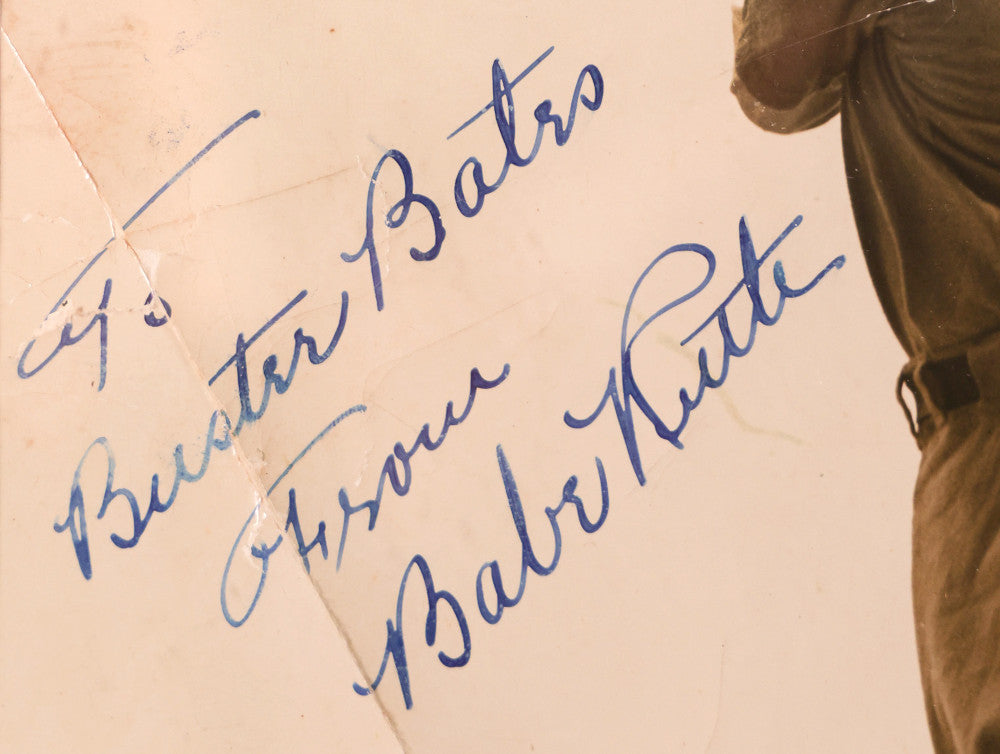 To
Buster Bates
From
Babe Ruth